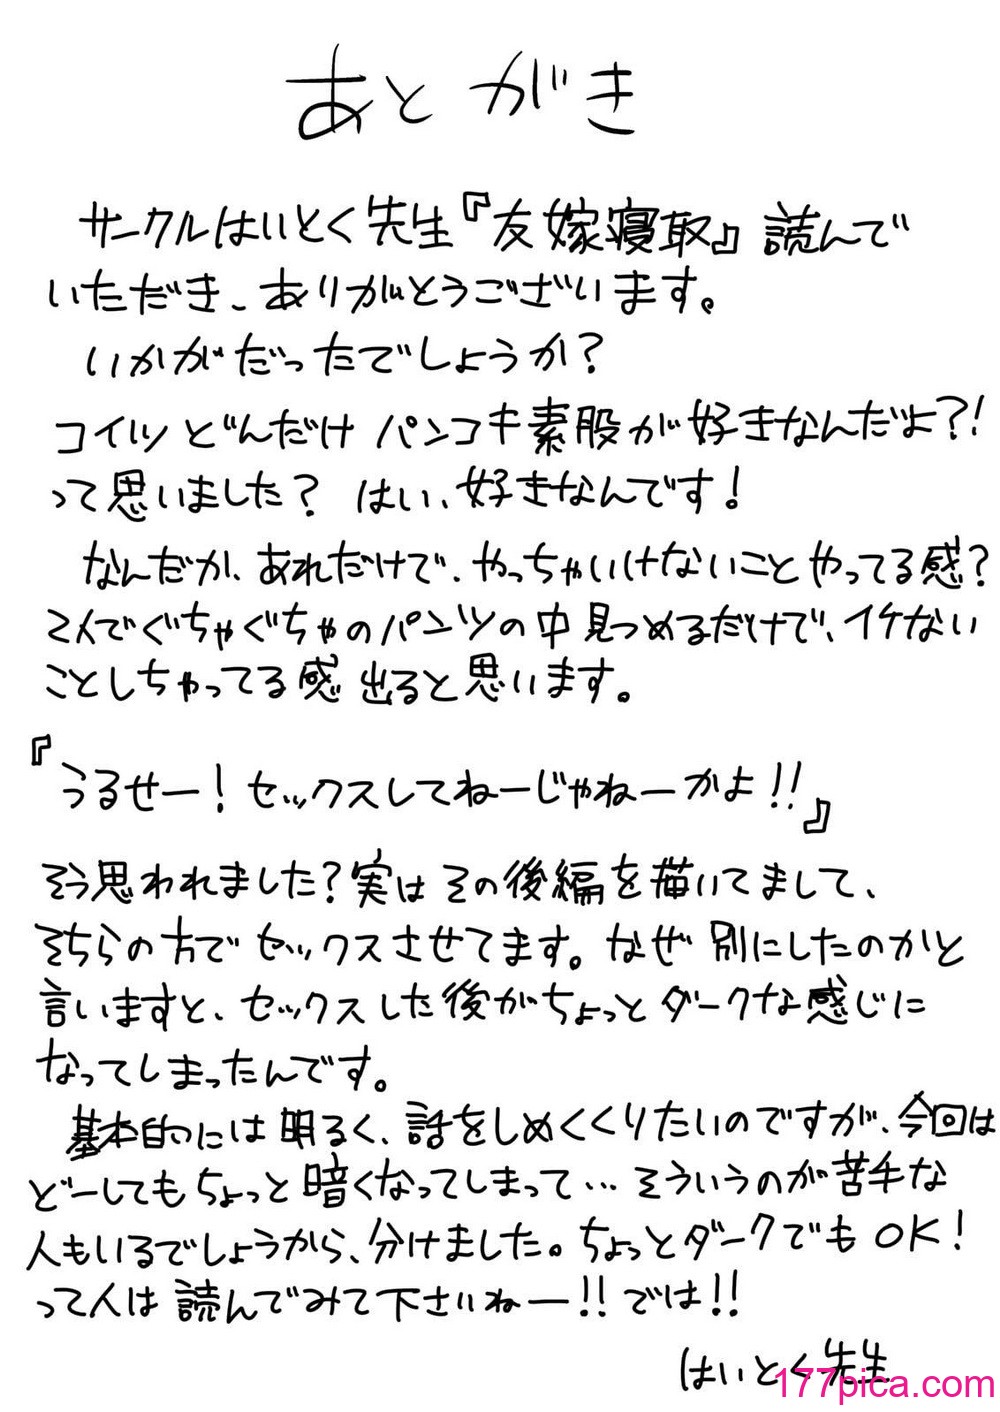 あとがき
サークルはいとく先生『友嫁寝取』読んで
いただき、ありがとうございます。
いかがだったでしょうか？
コイツどんだけパンコキ素股が好きなんだよ？！
って思いました？ はい、好きなんです！
なんだか、あれだけで、やっちゃいけないことやってる感？
2人でぐちゃぐちゃのパンツの中見つめるだけで、イケない
ことしちゃってる感出ると思います。
『うるせー！セックスしてねーじゃねーかよ！！』
そう思われました？実はその後編を描いてまして、
そちらの方でセックスさせてます。なぜ別にしたのかと
言いますと、セックスした後がちょっとダークな感じに
なってしまったんです。
基本的には明るく、話をしめくくりたいのですが、今回は
どーしてもちょっと暗くなってしまって…そういうのが苦手な
人もいるでしょうから、分けました。ちょっとダークでもOK！
って人は読んでみて下さいねー！！では！！
はいとく先生
177pica.com